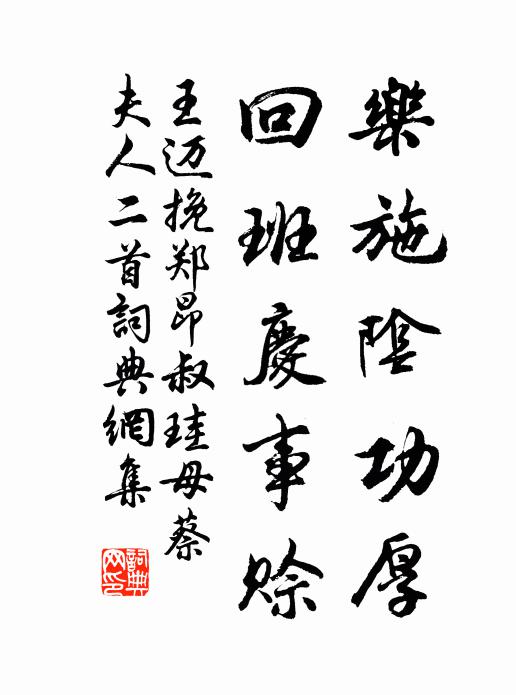 樂施陰功厚
回班慶事賒
王迈挽郑昂叔珪母蔡
夫人二首詞典網集
詞典網印